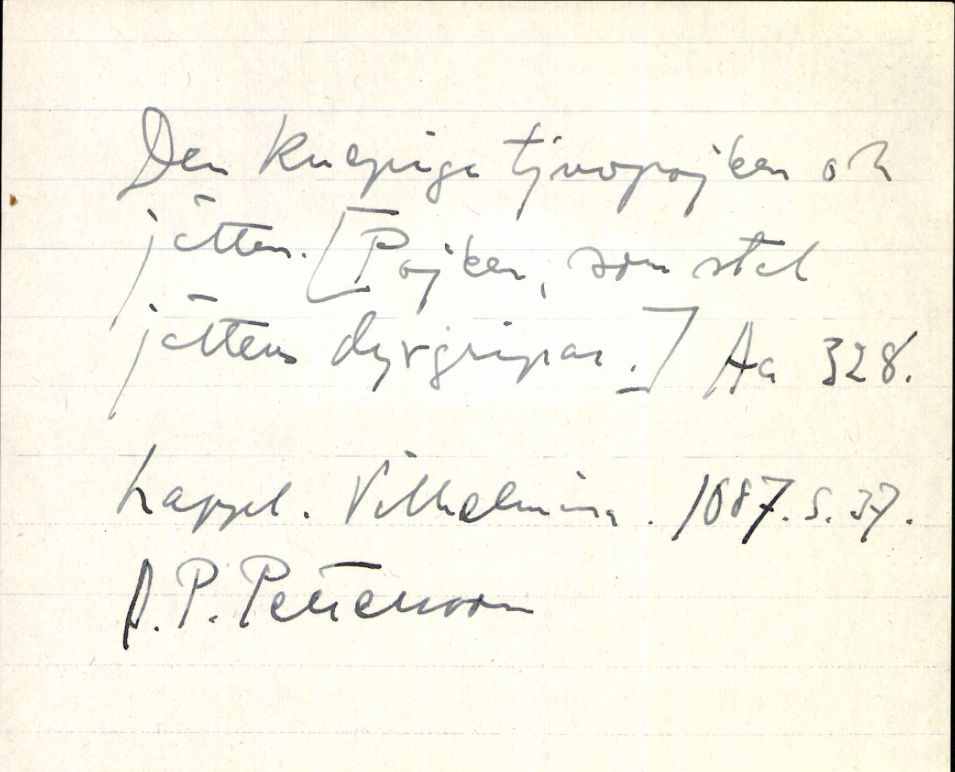 Den knepiga tjuvpojken och
jätten. [Pojken, som stal
jättens dyrgripar.] Aa 328.
Lappl. Vilhelmina. 1087. s. 37.
O. P. Pettersson